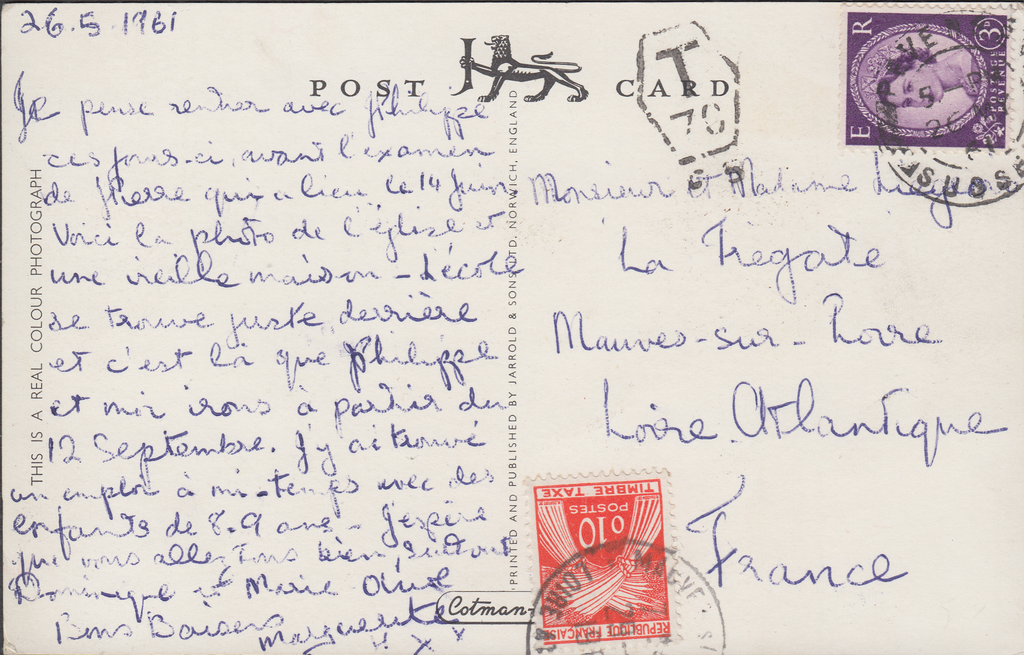 26.5.1961
POST CARD
Je pense rentrer avec Philippe
ces jours-ci, avant l'examen
de Pierre qui a lieu le 14 Juin
Voici la photo de l'église et
une vieille maison - L'école
se trouve juste derrière
et c'est là que Philippe
et moi irons à partir du
12 Septembre. J'y ai trouvé
un emploi à mi-temps avec des
enfants de 8-9 ans - J'espère
que vous allez tous bien, surtout
Dominique et Marie
Bons Baisers
Marguerite
X X
THIS IS A REAL COLOUR PHOTOGRAPH
PRINTED AND PUBLISHED BY JARROLD & SONS LTD, NORWICH, ENGLAND
Cotman-
T
70
E R
3D
POSTAGE
REVENUE
SUSSE
Monsieur et Madame
La Frégate
Mauves-sur-Loire
Loire Atlantique
France
TIMBRE TAXE
POSTES
0,10
REPUBLIQUE FRANÇAISE
MAUVES
LOIRE